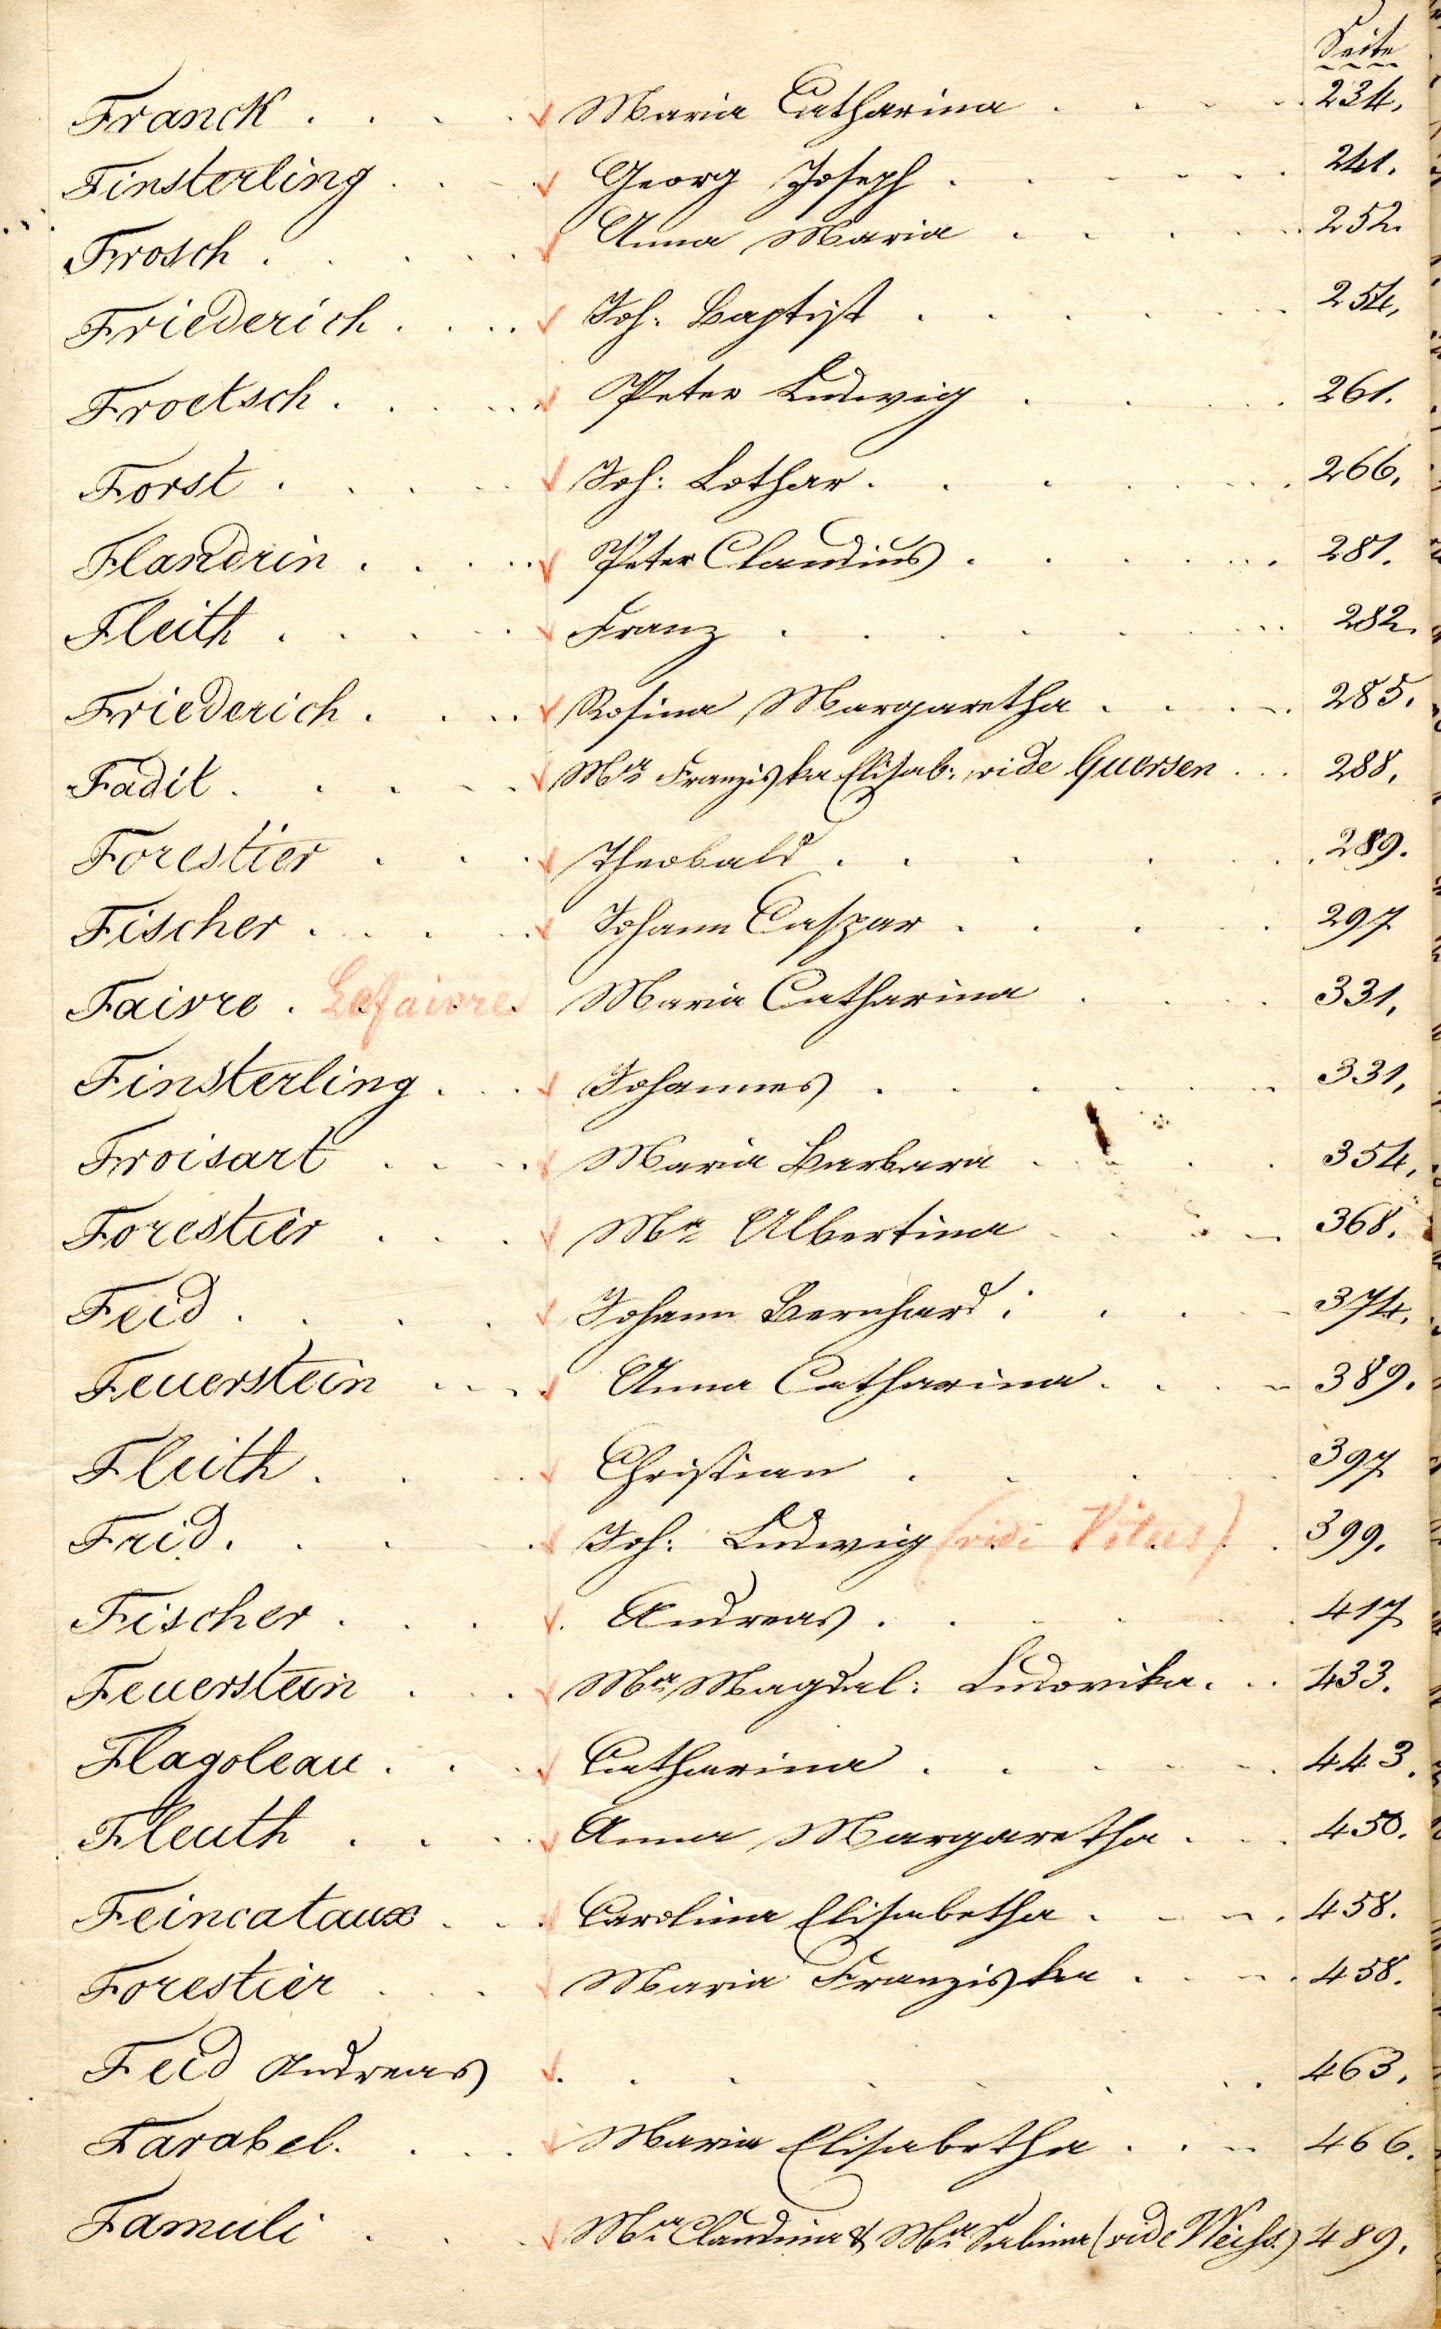 Seite
Franck . . . . Maria Catharina . . . . 234.
Finsterling . . . Georg Joseph . . . . . 241.
Frosch . . . . Anna Maria . . . . . 252.
Friederich . . . . Joh. Baptist . . . . . 254.
Froetsch . . . . Peter Ludwig . . . . 261.
Forst . . . . Joh: Lothar . . . . . 266.
Flandrin . . . . Peter Claudius . . . . . 281.
Fleith . . . . Franz . . . . . 282.
Friederich . . . . Rosina Margaretha . . . . 285.
Fadit . . . . Mra Franziska Elisab: vide Guersen . . . 288.
Forestier . . . . Theobald . . . . . 289.
Fischer . . . . Johann Caspar . . . . . 297
Faivre . Lefaivre Maria Catharina . . . . 331.
Finsterling . . . Johannes . . . . . 331.
Froisart . . . . Maria Barbara . . . . 354.
Forestier . . . Mra Albertina . . . . 368.
Feid . . . . Johann Bernhard . . . . 374.
Feuerstein . . . . Anna Catharina . . . . 389.
Fleith . . . Christian . . . . 397
Frid . . . . Joh: Ludwig (vide Vitus) . 399.
Fischer . . . . Andreas . . . . . 417
Feuerstein . . . Mra Magdal: Ludovika . . . 433.
Flagoleau . . . Catharina . . . . . 443.
Fleuth . . . . Anna Margaretha . . . 450.
Feincataux . . . Carolina Elisabetha . . . . 458.
Forestier . . . Maria Franziska . . . . 458.
Feid Andreas . . . . . . 463.
Farabel . . . . Maria Elisabetha . . . 466.
Famuli . . . Mra Claudina & Mra Sabina (vide Weiss.) 489.